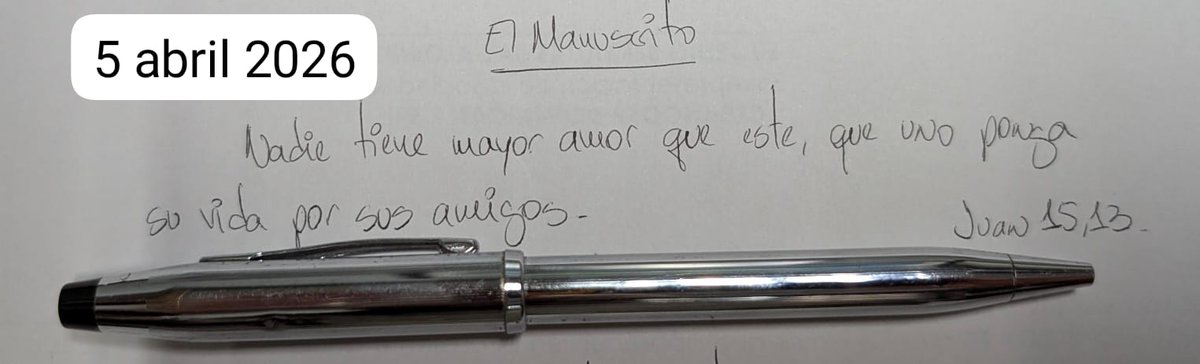 5 abril 2026
El Manuscrito
Nadie tiene mayor amor que este, que uno ponga
su vida por sus amigos.-
Juan 15,13.